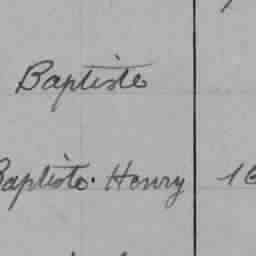 Baptiste
Baptiste. Henry 16